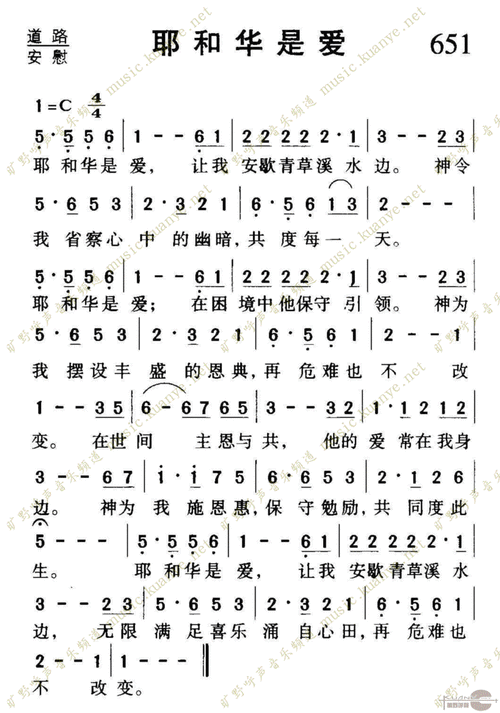 道路
安慰
耶和华是爱
651
1=C 4/4
5·5 5 6 | 1 - - 6 1 | 2 2 2 2 2 2·1 | 3 - - 2 3 |
耶和华是爱,让我安歇青草溪水边。神令
5·6 5 3 | 2·3 2 1 | 6·5 6 1 3 | 2 - - - |
我省察心中的幽暗,共度每一天。
5·5 5 6 | 1 - - 6 1 | 2 2 2 2 2 2·1 | 3 - - 2 3 |
耶和华是爱;在困境中他保守引领。神为
5·6 5 3 | 2·3 2 1 | 6·5 6 1 | 2 - - 2 1 |
我摆设丰盛的恩典,再危难也不改
1 - - 3 5 | 6 - 6 7 6 5 | 3 - - 3 2 | 1·1 2 1 2 |
变。在世间主恩与共,他的爱常在我身
3 - - 6 7 | 1·1 1 7 | 6·5 5 3 | 2·3 2 1 |
边。神为我施恩惠,保守勉励,共同度此
5 - - - | 5·5 5 6 | 1 - - 6 1 | 2 2 2 2 2 2·1 |
生。耶和华是爱,让我安歇青草溪水
3 - - 2 3 | 5·6 5 3 | 2·3 2 1 | 6·5 6 1 |
边,无限满足喜乐涌自心田,再危难也
2 - 2·1 | 1 - - ‖
不改变。
旷野呼声音乐频道 music.kuanye.net